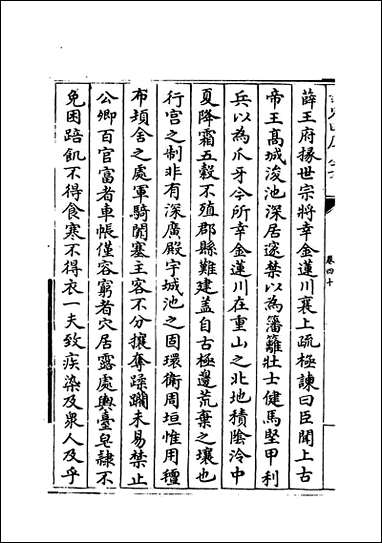 薛王府掾世宗將幸金蓮川襄上疏極諫曰臣聞上古
帝王髙城浚池深居邃禁以為籓籬壯士健馬堅甲利
兵以為爪牙今所幸金蓮川在重山之北地積陰冷中
夏降霜五穀不殖郡縣難建蓋自古極邊荒棄之壤也
行宫之制非有深廣殿宇城池之固環衛周垣惟用氊
布頓舍之處軍騎闐塞主客不分攘奪蹂躪未易禁止
公卿百官富者車帳僅容窮者穴居露處輿臺皂隷不
免困踣飢不得食寒不得衣一夫致疾染及衆人及乎
卷四十